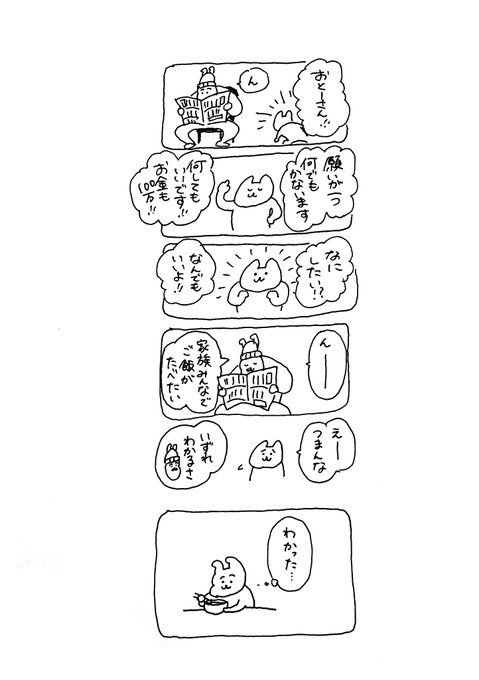 おとーさん!!
ん
願いが一つ
何でも
かないます
何しても
いいです!!
お金も
100万!!
なに
したい!?
なんでも
いいよ!!
んー
家族みんなで
ご飯が
たべたい
えー
つまんな
いずれ
わかるさ
わかった…